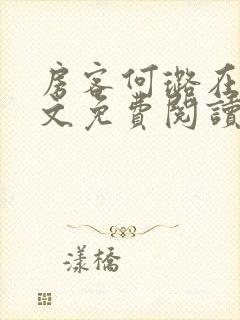 房客何璐在
文免費閱讀
漾橋